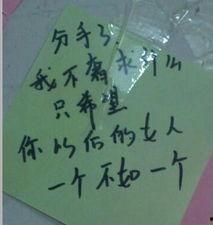 分手了
我不奢求什么
只希望
你以后的女人
一个不如一个